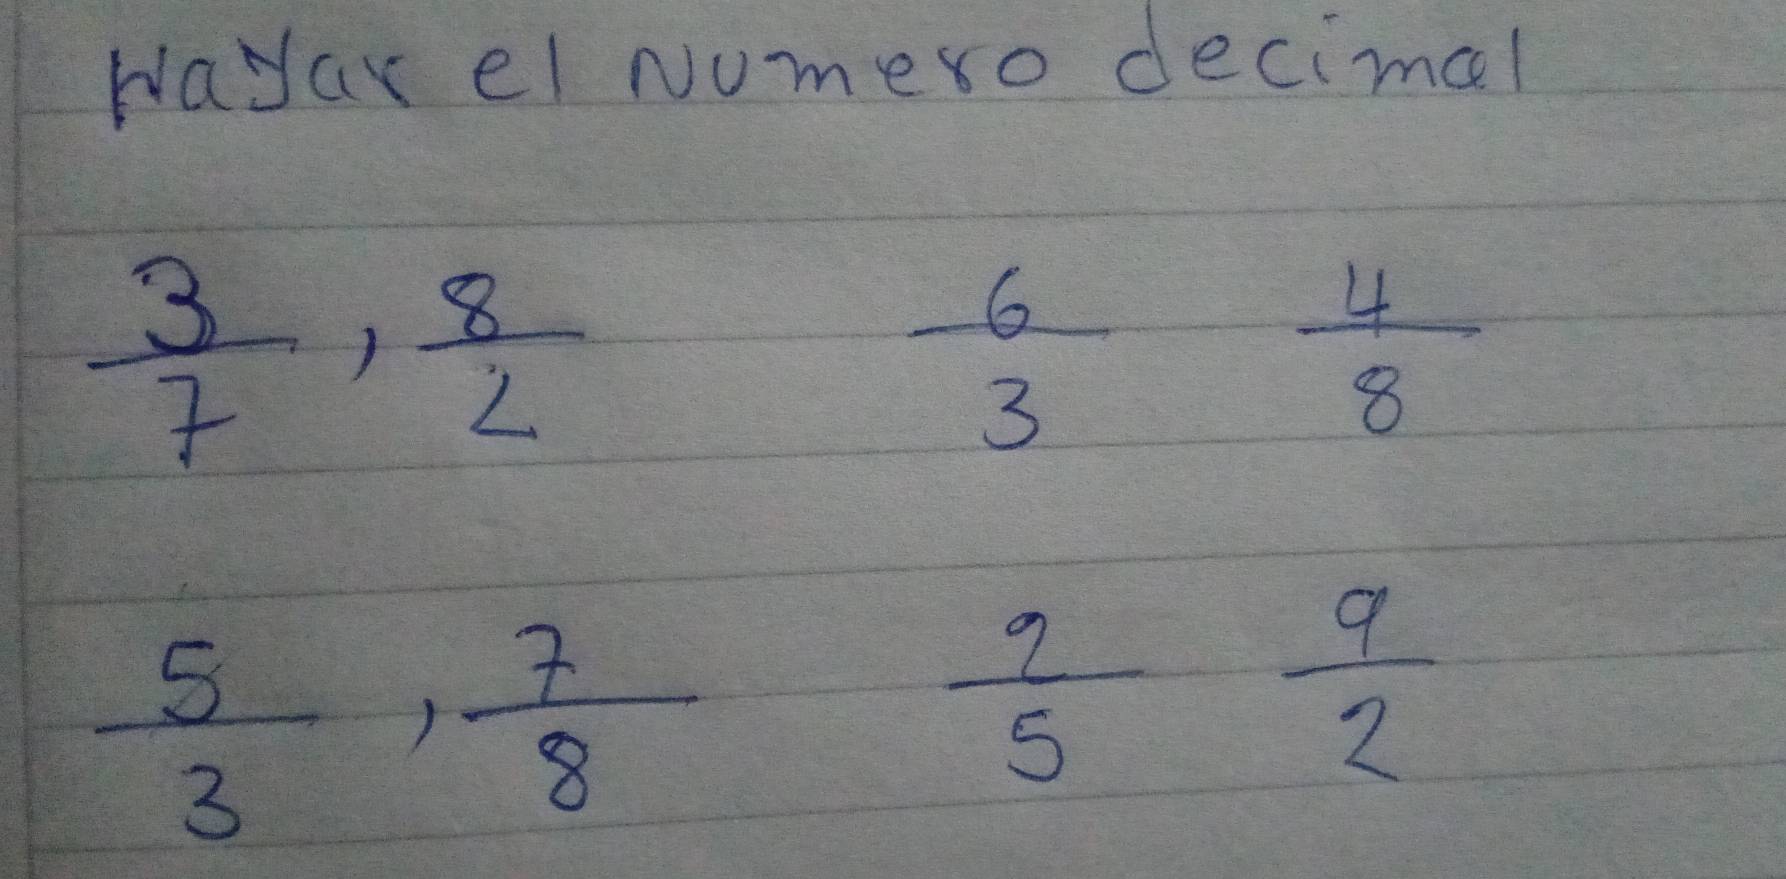 Hayar el Numero decimal
3/7 , 8/2 6/3 4/8
5/3 , 7/8 2/5 9/2